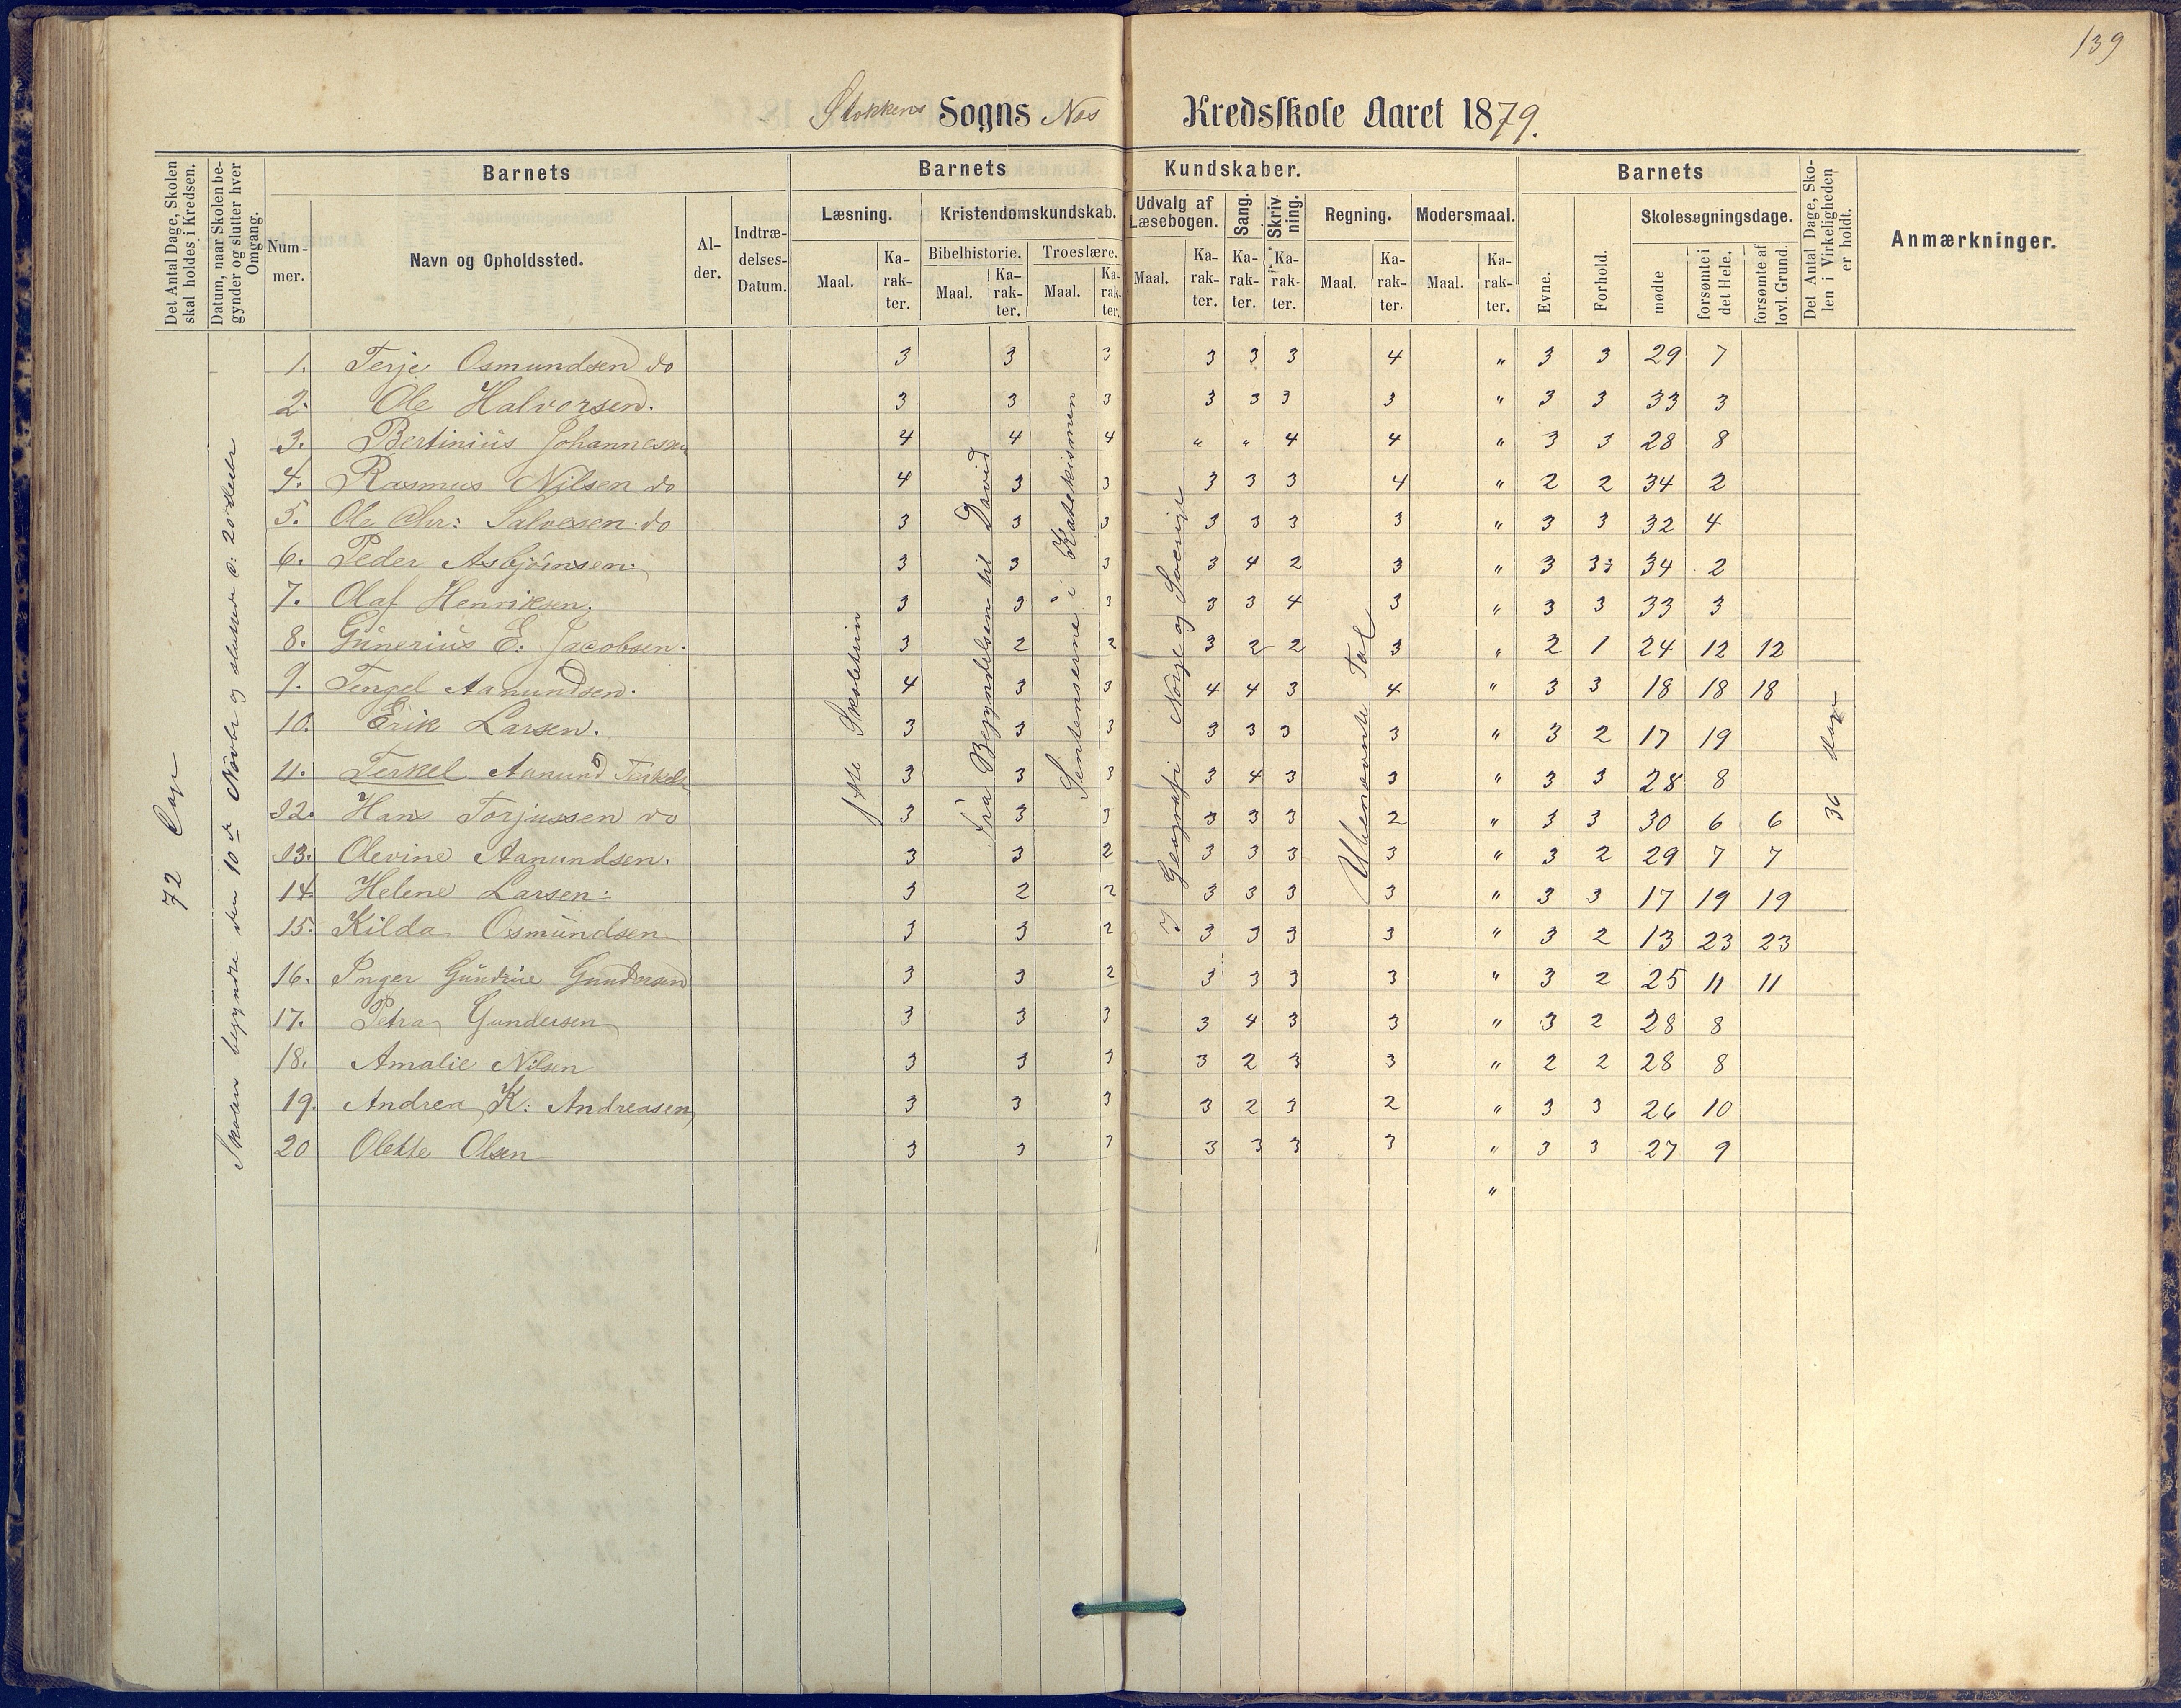 139
Stokkens Sogns Næs Kredsskole Aaret 1879.
Det Antal Dage, Skolen skal holdes i Kredsen.
Datum, naar Skolen begynder og slutter hver Omgang.
Barnets
Nummer.
Navn og Opholdssted.
Alder.
Indtrædelses-Datum.
Barnets Kundskaber.
Læsning.
Maal.
Karakter.
Kristendomskundskab.
Bibelhistorie.
Maal.
Karakter.
Troeslære.
Maal.
Karakter.
Udvalg af Læsebogen.
Maal.
Karakter.
Sang.
Karakter.
Skrivning.
Karakter.
Regning.
Maal.
Karakter.
Modersmaal.
Maal.
Karakter.
Barnets
Evne.
Forhold.
Skolesøgningsdage.
mødte
forsømte i det Hele.
forsømte af lovl. Grund.
Det Antal Dage, Skolen i Virkeligheden er holdt.
Anmærkninger.
72 Dage
Skolen begyndte den 10de Novbr og sluttede d: 20 Decbr
1ste Skoletrin
Fra Begyndelsen til David
Sentenserne i Katekismen
I Geografi Norge og Sverrige
Ubenævnte Tal
36 Dage
1. Terje Osmundsen do 3 3 3 3 3 3 4 " 3 3 29 7
2. Ole Halvorsen. 3 3 3 3 3 3 3 " 3 3 33 3
3. Bertinius Johannesen 4 4 4 " " 4 4 " 3 3 28 8
4. Rasmus Nilsen do 4 3 3 3 3 3 4 " 2 2 34 2
5. Ole Chr: Salvesen do 3 3 3 3 3 3 3 " 3 3 32 4
6. Peder Asbjörnsen. 3 3 3 3 4 2 3 " 3 3 34 2
7. Olaf Henriksen. 3 3 3 3 3 4 3 " 3 3 33 3
8. Gunerius E. Jacobsen. 3 2 2 3 2 2 3 " 2 1 24 12 12
9. Tengel Aanundsen. 4 3 3 4 4 3 4 " 3 3 18 18 18
10. Erik Larsen. 3 3 3 3 3 3 3 " 3 2 17 19
11. Terkel Aanund Terkels 3 3 3 3 4 3 3 " 3 3 28 8
12. Hans Torjussen do 3 3 3 3 3 3 2 " 3 3 30 6 6
13. Olevine Aanundsen. 3 3 2 3 3 3 3 " 3 2 29 7 7
14. Helene Larsen 3 2 2 3 3 3 3 " 3 3 17 19 19
15. Kilda Osmundsen 3 3 2 3 3 3 3 " 3 2 13 23 23
16. Inger Gundersen 3 3 2 3 3 3 3 " 3 2 25 11 11
17. Petra Gundersen 3 3 3 3 4 3 3 " 3 2 28 8
18. Amalie Nilsen 3 3 3 3 2 3 3 " 2 2 28 8
19. Andrea K. Andreasen 3 3 3 3 2 3 2 " 3 3 26 10
20 Olette Olsen 3 3 3 3 3 3 3 " 3 3 27 9
"